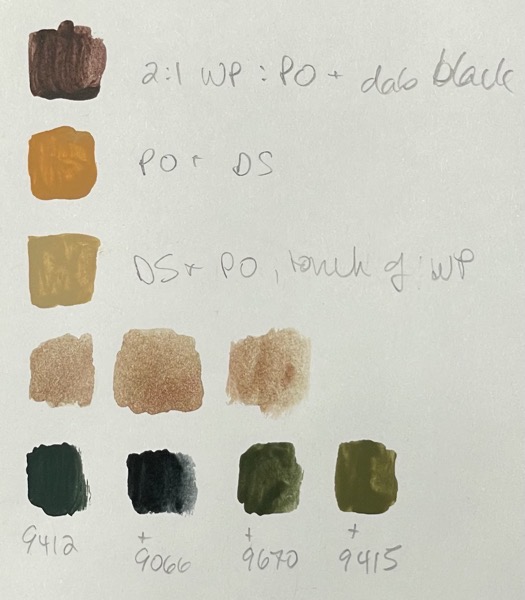 2:1 WP : PO + dab black
PO + DS
DS + PO, touch of WP
9412 + 9066 + 9670 + 9415